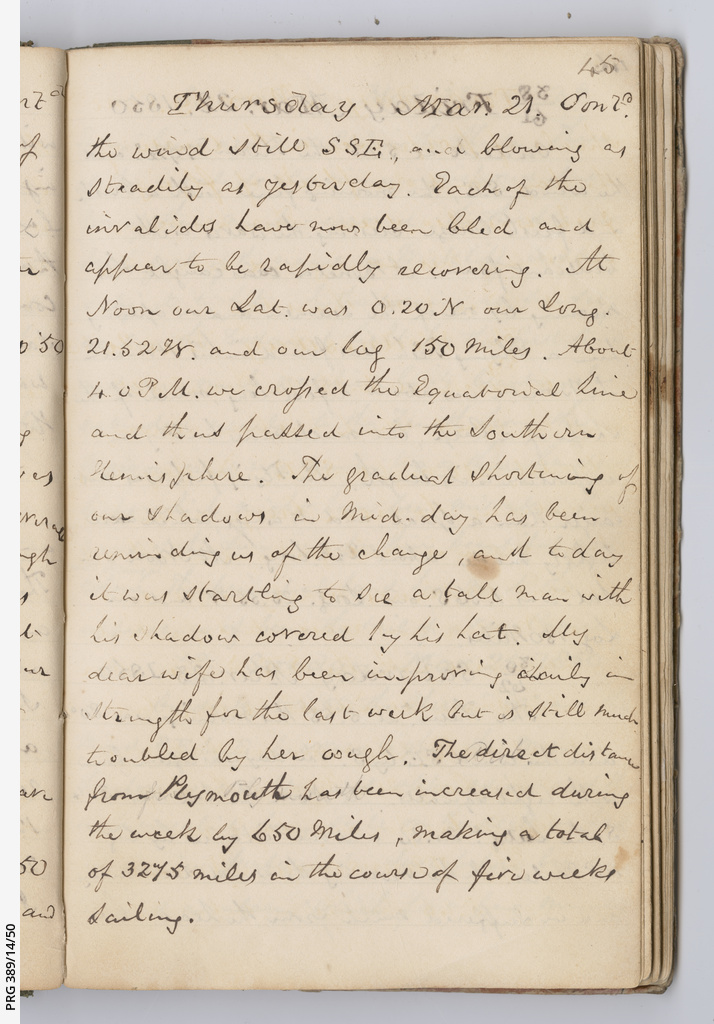 45
Thursday Mar. 21. Cont.d
the wind still SSE., and blowing as
steadily as yesterday. Each of the
invalids have now been bled and
appear to be rapidly recovering. At
Noon our Lat. was 0.20 N our Long.
21.52 W. and our log 150 Miles. About
4.0 P.M. we crossed the Equatorial Line
and thus passed into the Southern
Hemisphere. The gradual shortening of
our shadows in Mid-day has been
reminding us of the change, and today
it was startling to see a tall man with
his shadow covered by his hat. My
dear wife has been improving daily in
strength for the last week but is still much
troubled by her cough. The direct distance
from Plymouth has been increased during
the week by 650 Miles, making a total
of 3275 miles in the course of five weeks
sailing.
0.50
50
and
PRG 389/14/50